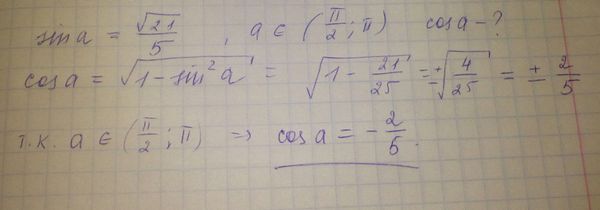 sin a = √21/5 , a ∈ (π/2 ; π) cos a - ?
cos a = √(1 - sin² a) = √(1 - 21/25) = ±√(4/25) = ± 2/5
т.к. a ∈ (π/2 ; π) ⇒ cos a = - 2/5.